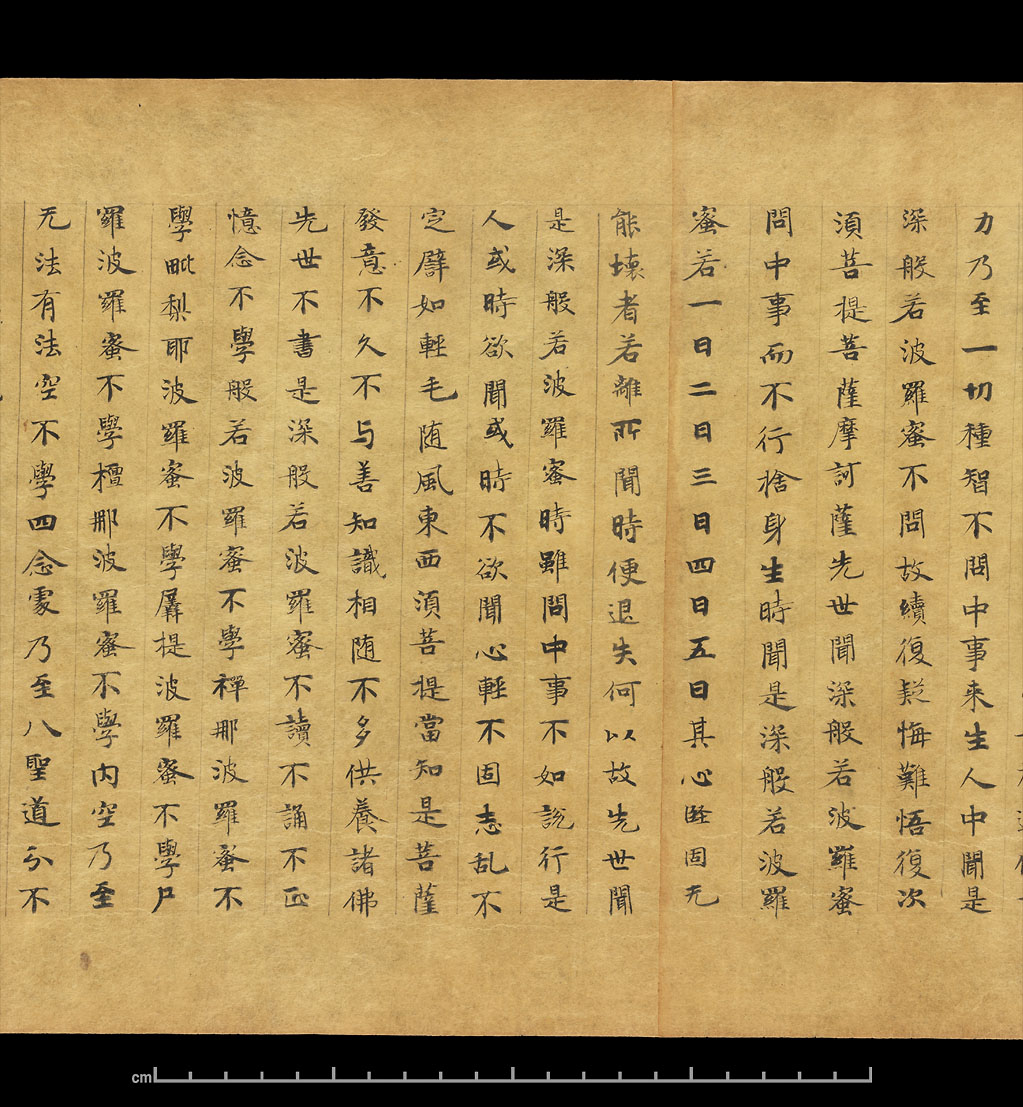 力乃至一切種智不問中事来生人中聞是
深般若波羅蜜不問故續復疑悔難悟復次
湏菩提菩薩摩訶薩先世聞深般若波羅蜜
問中事而不行捨身生時聞是深般若波羅
蜜若一日二日三日四日五日其心堅固无
能壞者若離所聞時便退失何以故先世聞
是深般若波羅蜜時雖問中事不如說行是
人或時欲聞或時不欲聞心輕不固志乱不
定譬如輕毛随風東西湏菩提當知是菩薩
發意不久不与善知識相随不多供養諸佛
先世不書是深般若波羅蜜不讀不誦不正
憶念不學般若波羅蜜不學禪那波羅蜜不
學毗梨耶波羅蜜不學羼提波羅蜜不學尸
羅波羅蜜不學檀那波羅蜜不學内空乃至
无法有法空不學四念處乃至八聖道分不
cm